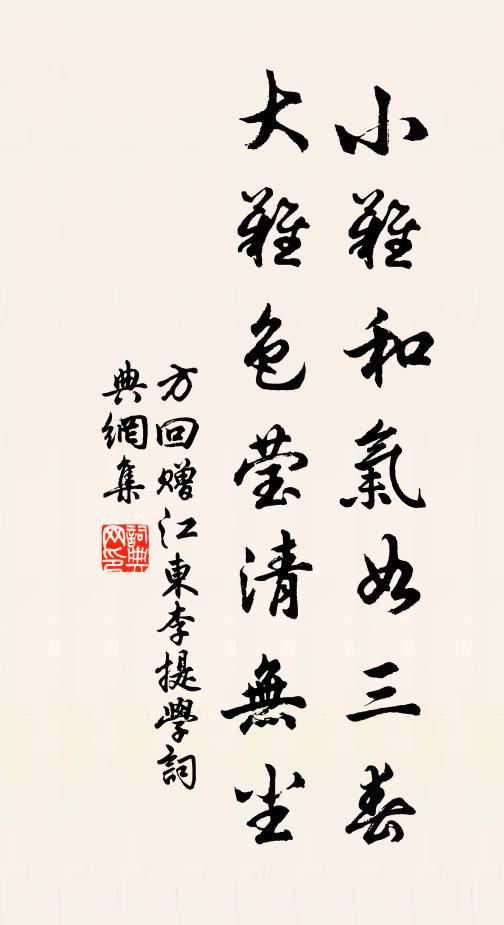 小難和氣如三春
大難色莹清無尘
方回贈江東李提學詞
典網集
詞典
网印